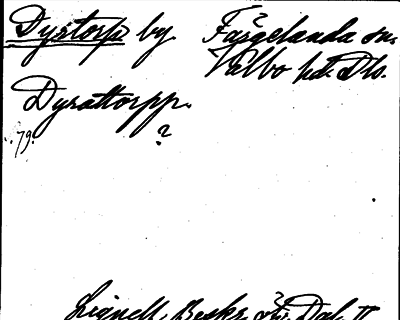 Dystorp by Färgelanda sn.
Valbo hd. Dls.
Dyrattorpp.
..79. ?
Lignell, Beskr. Dal. II